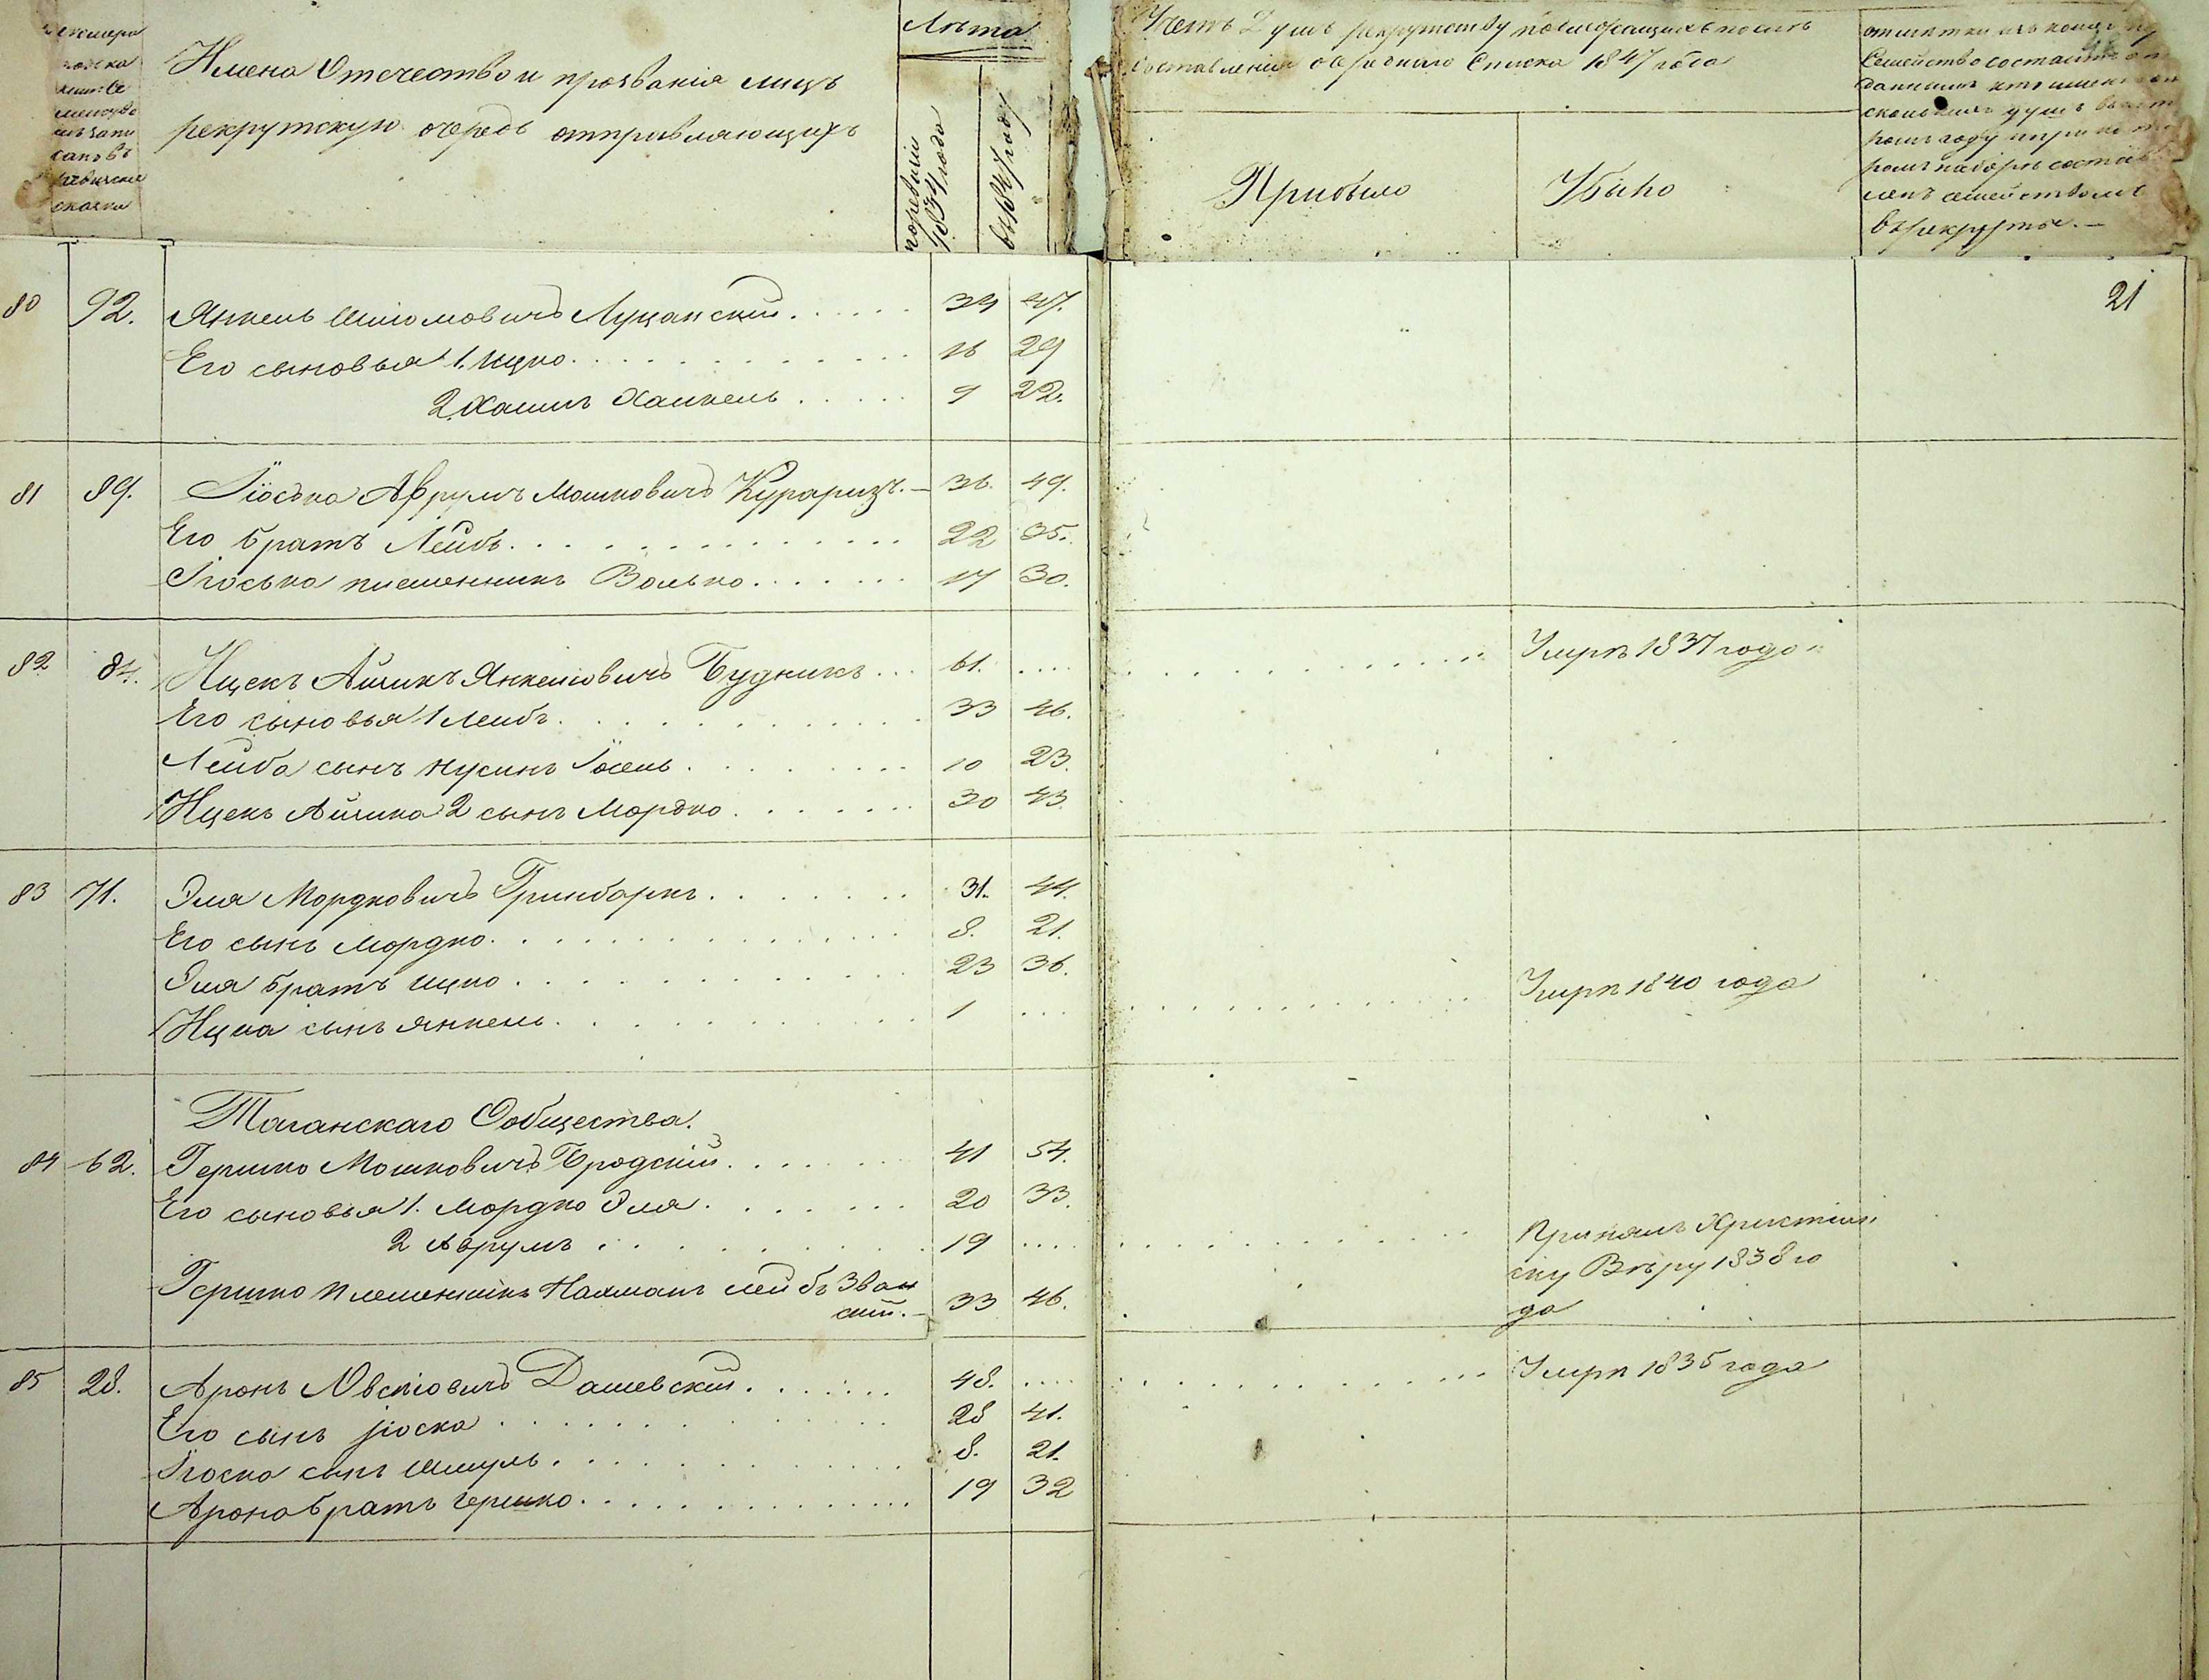 Имена Отечество и прозванія лицъ
рекрутскую очередь отправляющихъ
Лѣта
по ревизіи 1834 года
въ 1847 году
Счетъ Душъ рекрутству подлежащихъ послѣ
составленія очереднаго Списка 1847 года
Прибыло
Убыло
отмѣтки изъ коего
Семейство состоитъ
ромъ году и при кото
ромъ наборѣ состав
ленъ семействомъ
въ рекруты.
21
80 92. Янкель Шліомовичъ Луцанский 34 47.
Его сыновья 1. Ицко 16 29
2. Хаимъ Хаикель 9 22.
81 89. Іосько Аврумъ Мошковичъ Кураризъ. 36. 49.
Его братъ Лейбъ 22 35.
Іосько племенникъ Волько 17 30.
82 84. Ицекъ Айзикъ Янкеліовичъ Будникъ 61. Умрѣ 1837 года
Его сыновья 1 Лейбъ 33 46.
Лейба сынъ Нусинъ Іосель 10 23.
Ицекъ Айзика 2 сынъ Мордко 30 43.
83 71. Эля Мордковичъ Гринбаркъ 31. 44.
Его сынъ Мордко 8. 21.
Эля братъ Ицко 23 36.
Ицка сынъ Янкель 1 Умрѣ 1840 года
Таганскаго Общества.
84 62. Гершко Мошковичъ Бродскій 41 54.
Его сыновья 1. Мордко Эля 20 33.
2 Аврумъ 19 Принялъ Христіян
ску Вѣру 1838 го
да
Гершко племенникъ Нахманъ Лейбъ Зван
скій. 33 46.
85 28. Аронъ Овсіовичъ Дашевскій 48. Умрѣ 1835 года
Его сынъ Іоска 28 41.
Іоска сынъ Шмуль 8. 21.
Арона братъ Гершко 19 32